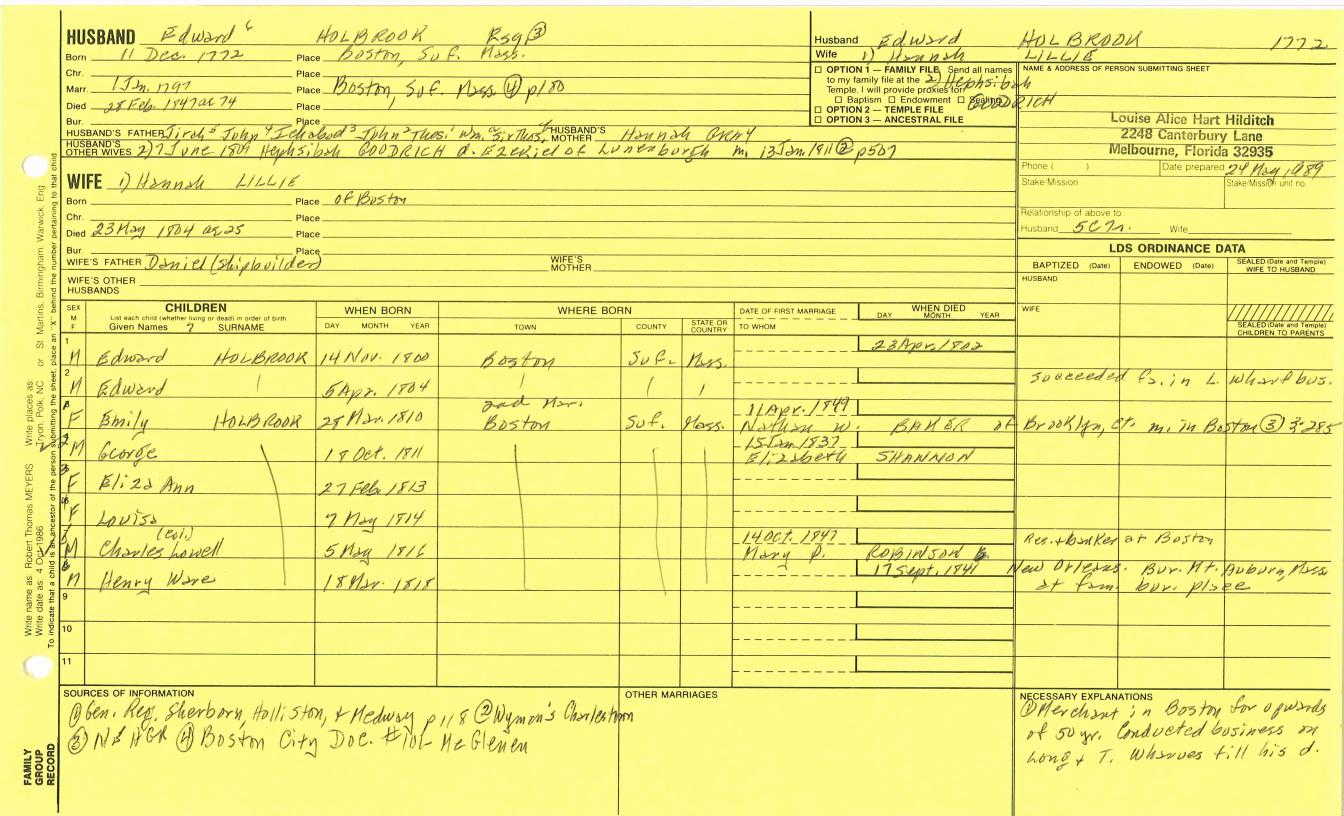 HUSBAND Edward 6 HOLBROOK Esq ③
Born 11 Dec. 1772 Place Boston, Suf. Mass.
Chr. Place
Marr. 1 Jan. 1797 Place Boston, Suf. Mass ④ p180
Died 28 Feb. 1847 ae 74 Place
Bur. Place
HUSBAND'S FATHER John Ichabod John Thos. Wm. HUSBAND'S MOTHER Hannah
HUSBAND'S OTHER WIVES 2) 7 June 1809 Hephsibah GOODRICH d. Ezekiel of Lunenburgh m. 13 Jan 1811 ② p507
WIFE 1) Hannah LILLIE
Born Place of Boston
Chr. Place
Died 23 May 1804 ae 25 Place
Bur Place
WIFE'S FATHER Daniel (Shipbuilder) WIFE'S MOTHER
WIFE'S OTHER HUSBANDS
Husband Edward HOLBROOK 1772
Wife 1) Hannah LILLIE
2) Hephsibah GOODRICH
☐ OPTION 1 — FAMILY FILE Send all names
to my family file at the
Temple. I will provide proxies for
☐ Baptism ☐ Endowment ☐ Sealing
☐ OPTION 2 — TEMPLE FILE
☐ OPTION 3 — ANCESTRAL FILE
NAME & ADDRESS OF PERSON SUBMITTING SHEET
Louise Alice Hart Hilditch
2248 Canterbury Lane
Melbourne, Florida 32935
Phone ( ) Date prepared 24 May 1989
Stake/Mission Stake/Mission unit no.
Relationship of above to:
Husband Wife
LDS ORDINANCE DATA
BAPTIZED (Date) ENDOWED (Date) SEALED (Date and Temple) WIFE TO HUSBAND
HUSBAND
WIFE
SEALED (Date and Temple) CHILDREN TO PARENTS
SEX M F
CHILDREN
List each child (whether living or dead) in order of birth
Given Names 7 SURNAME
WHEN BORN DAY MONTH YEAR
WHERE BORN TOWN COUNTY STATE OR COUNTRY
DATE OF FIRST MARRIAGE TO WHOM
WHEN DIED DAY MONTH YEAR
1 M Edward HOLBROOK 14 Nov. 1800 Boston Suf. Mass. 23 Apr. 1802
2 M Edward 5 Apr. 1804 Succeeded fa. in L. Wharf bus.
2nd Mar.
F Emily HOLBROOK 28 Mar. 1810 Boston Suf. Mass. 11 Apr. 1849 Nathan W. BAKER of Brooklyn, Ct. m. in Boston ③ 3:285
2 M George 18 Oct. 1811 15 Jan 1837 Elizabeth SHANNON
3 F Eliza Ann 27 Feb. 1813
F Louisa 7 May 1814
M Charles Lowell (Col.) 5 May 1816 14 Oct. 1847 Mary P. ROBINSON Res. & banker at Boston
6 M Henry Ware 18 Mar. 1818 17 Sept. 1841 New Orleans. Bur. Mt. Auburn, Mass
at fam. bur. place
9
10
11
SOURCES OF INFORMATION
① Gen. Reg. Sherborn, Holliston, & Medway p 118 ② Wyman's Charlestown
③ NEHGR ④ Boston City Doc. #101 McGlenen
OTHER MARRIAGES
NECESSARY EXPLANATIONS
① Merchant in Boston for upwards
of 50 yr. Conducted business on
Long & T. Wharves till his d.
Write name as: Robert Thomas MEYERS Write places as: Tryon, Polk, NC or St. Martins, Birmingham, Warwick, Eng
Write date as: 4 Oct 1986
To indicate that a child is an ancestor of the person submitting the sheet, place an "X" behind the number pertaining to that child
FAMILY GROUP RECORD